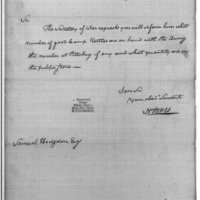 Sir
The Secretary of War requests you will inform him what
number of good Camp Kettles are on hand with the Army
the number at Pittsburg if any and what quantity are in
the public Store —
I am Sir
Your Obed Servant
Samuel Hodgdon Esqr